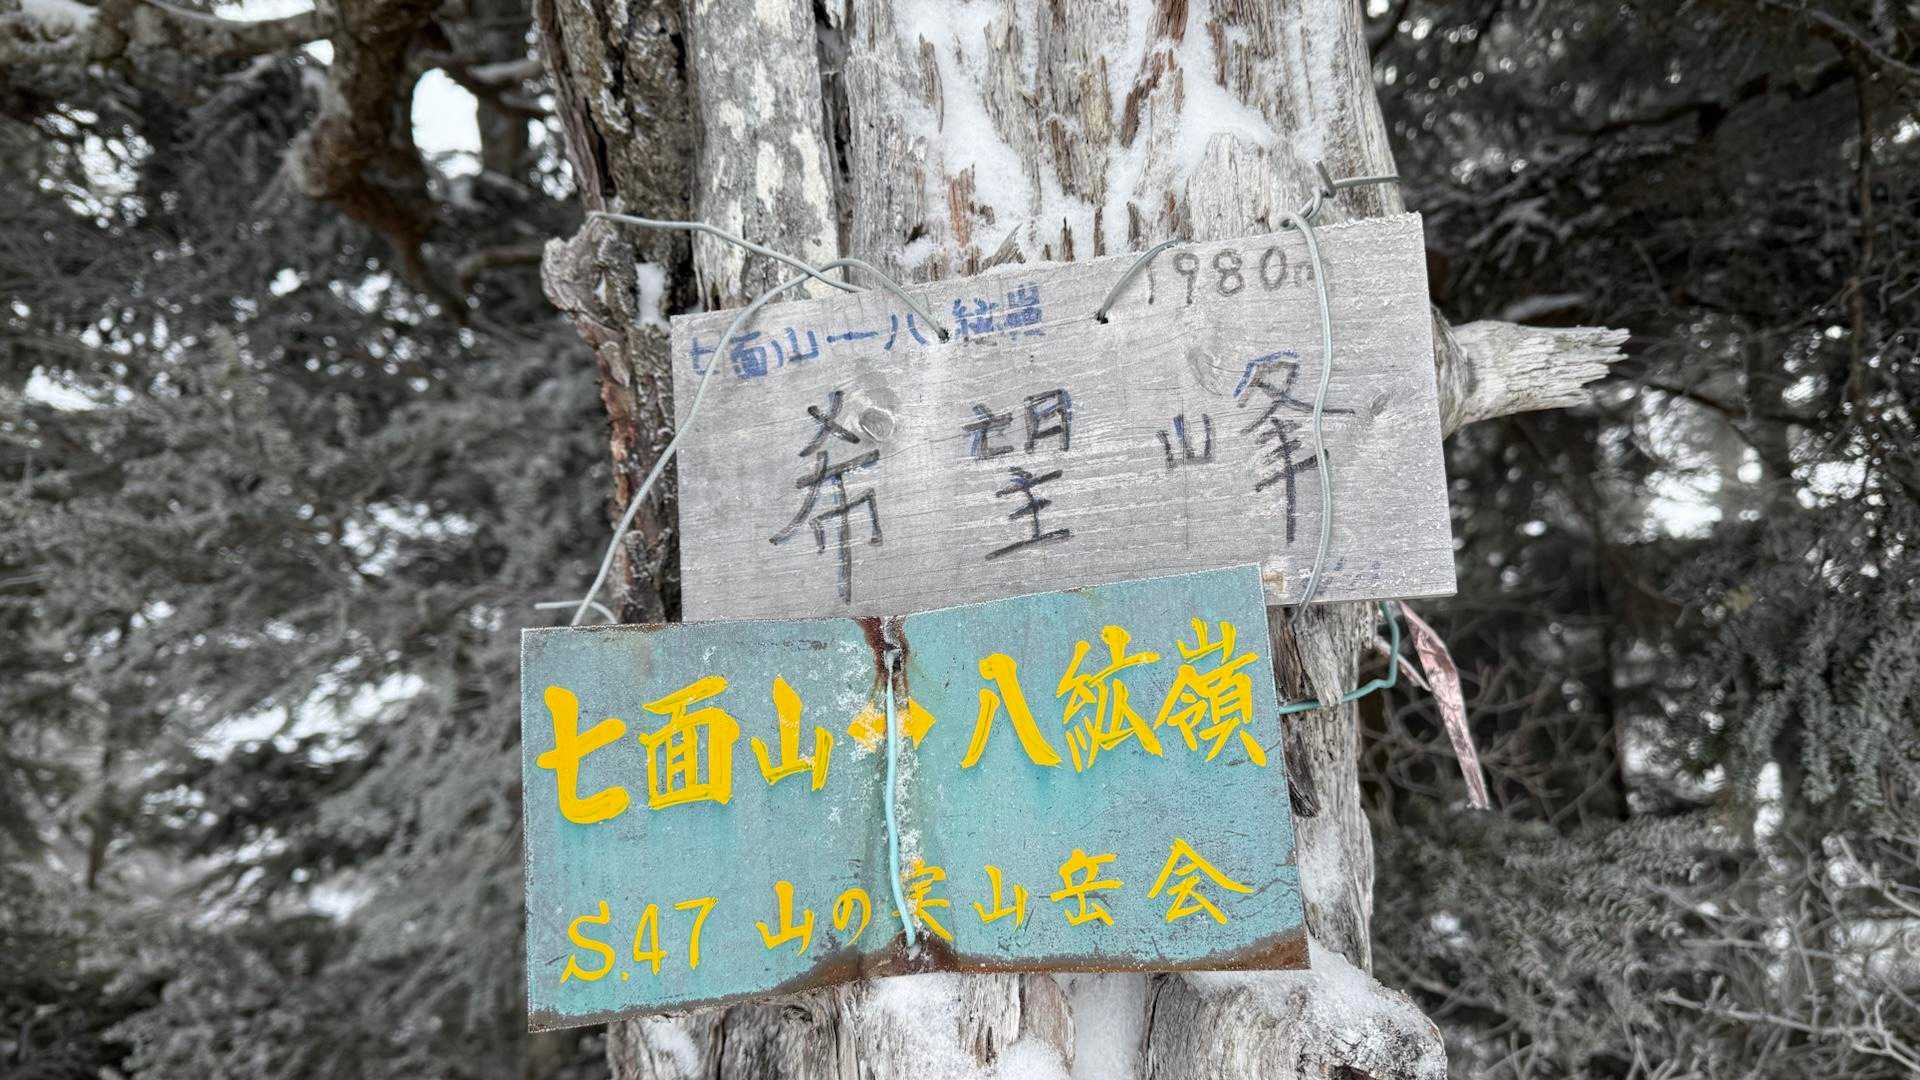 1980m
七面山一八紘嶺
希望峰
七面山↔八紘嶺
S.47 山の実山岳会